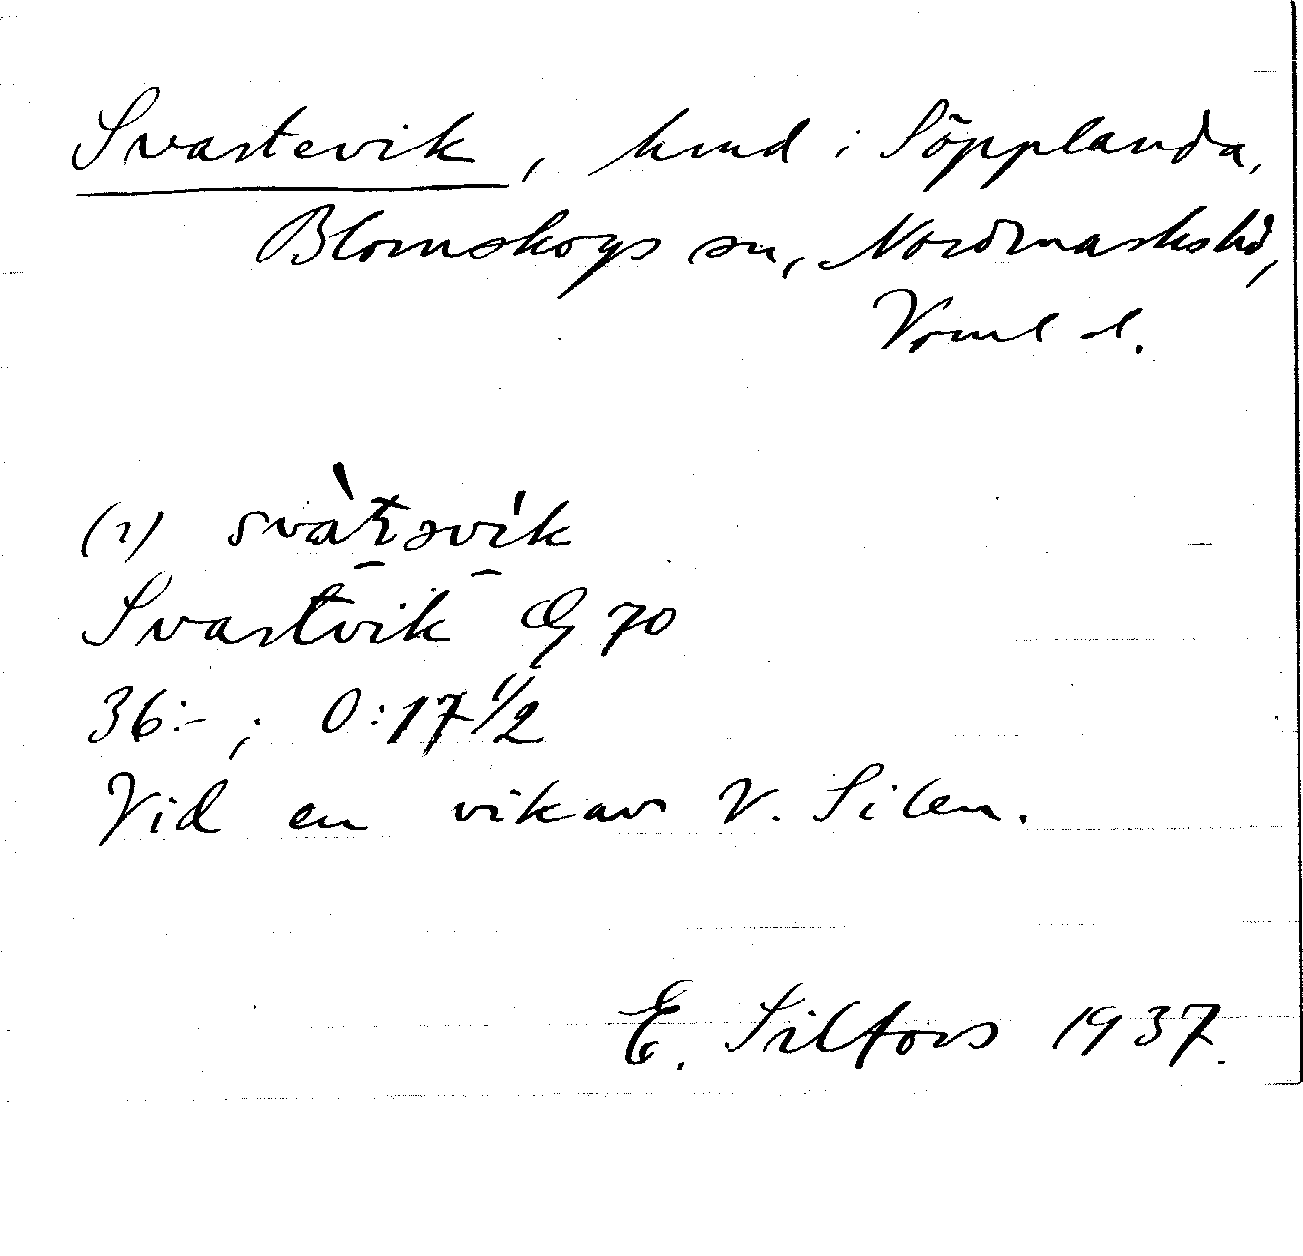 Svartevik, hmd i Söpplanda,
Blomskogs sn, Nordmarks hd,
Verml. l.
(1)
Svartvik G 70
36:- ; 0:17 1/2
Vid en vik av V. Silen.
E. Silfors 1937.